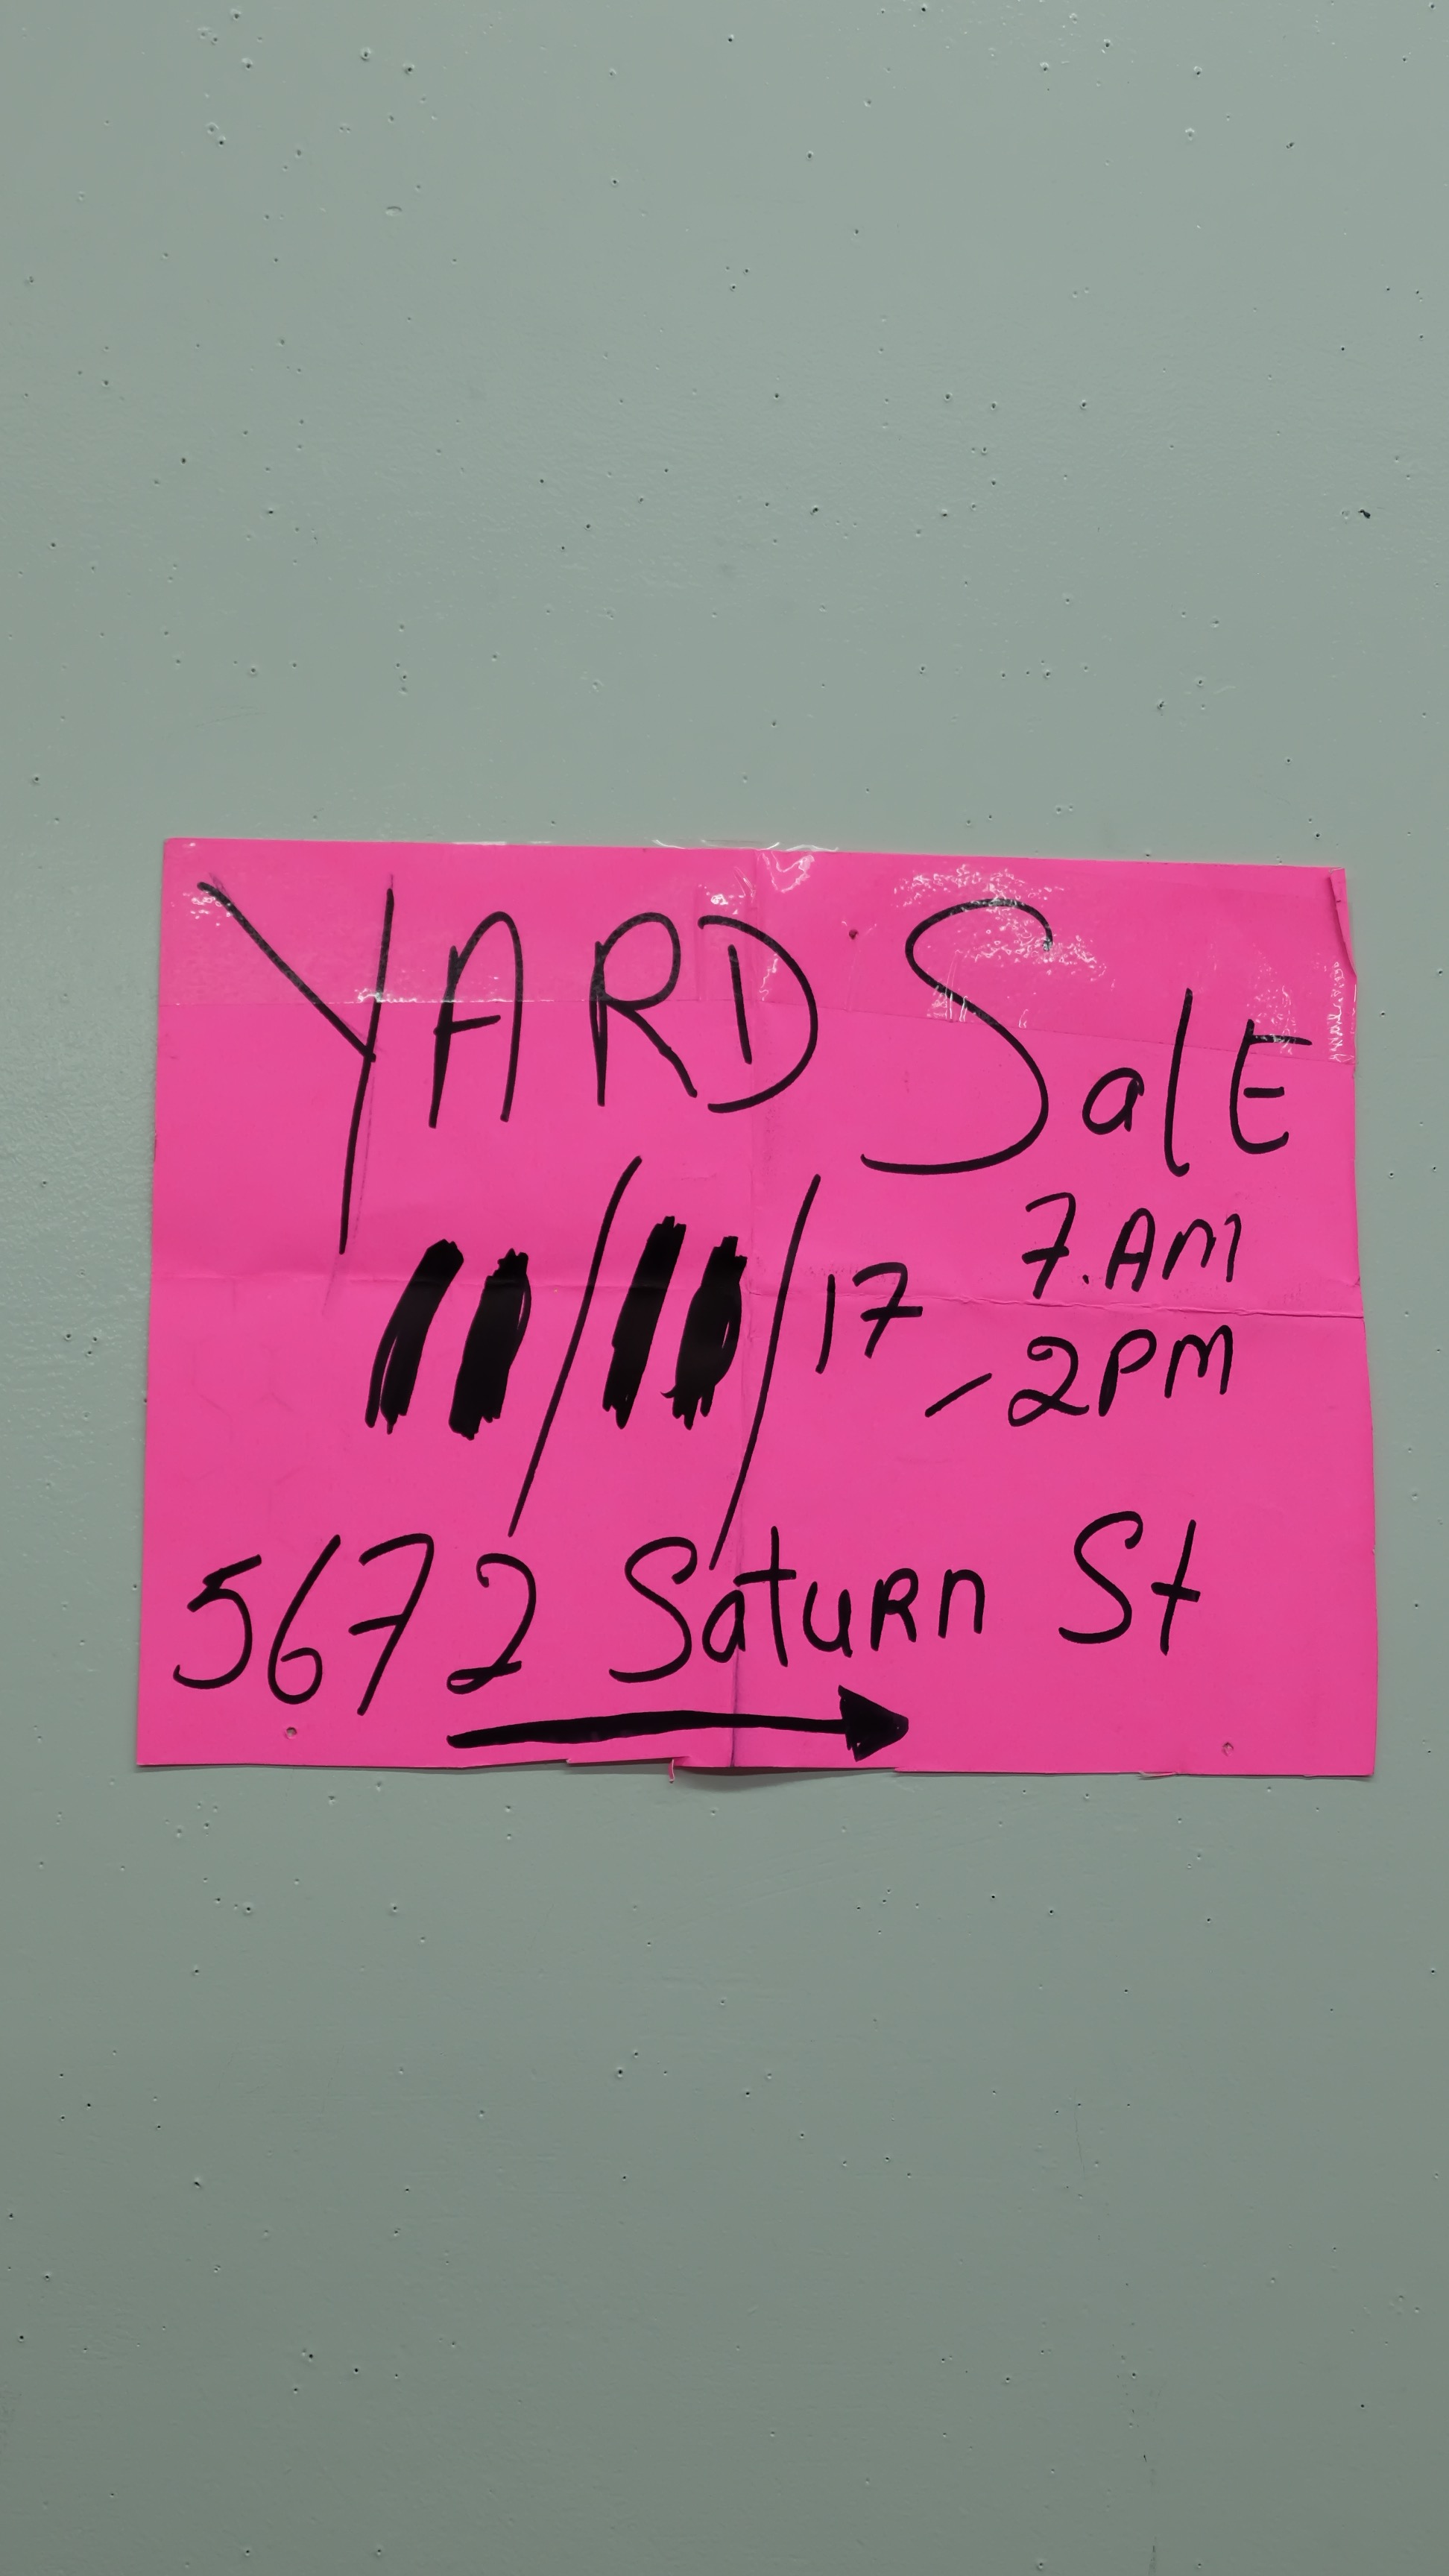 YARD SalE
/ /17 7.AM
-2PM
5672 SatuRn St